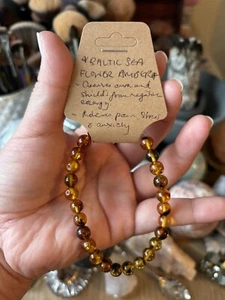 BALTIC SEA
FLOWER AMBER
- Cleanses aura and
shields from negative
energy
- Relieves pain, stress
& anxiety